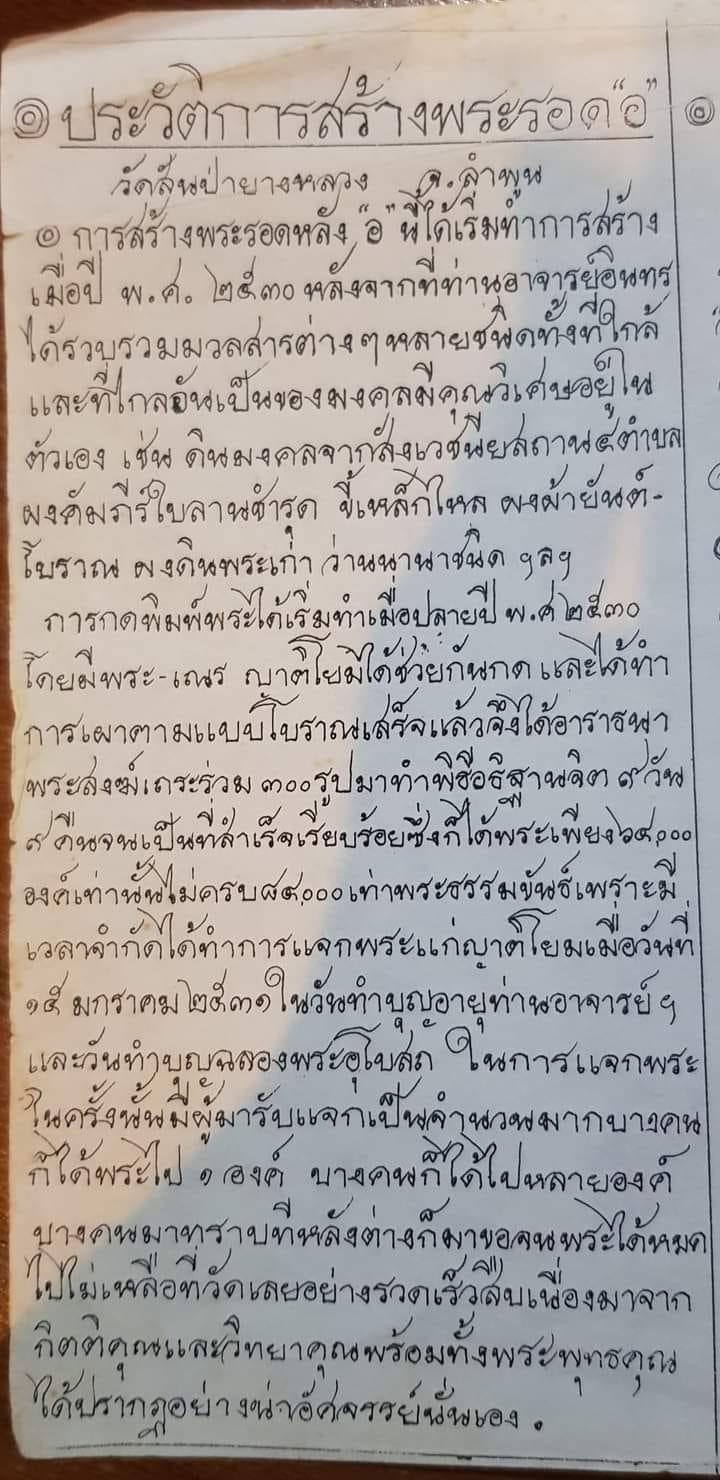 ๏ ประวัติการสร้างพระรอด"อ" ๏
วัดสันป่ายางหลวง จ.ลำพูน
๏ การสร้างพระรอดหลัง "อ" นี้ได้เริ่มทำการสร้าง
เมื่อปี พ.ศ. ๒๕๓๐ หลังจากที่ท่านอาจารย์อินทร
ได้รวบรวมมวลสารต่างๆหลายชนิดทั้งที่ใกล้
และที่ไกลอันเป็นของมงคลมีคุณวิเศษอยู่ใน
ตัวเอง เช่น ดินมงคลจากสังเวชนียสถาน๔ตำบล
ผงคัมภีร์ใบลานชำรุด ขี้เหล็กไหล ผงผ้ายันต์-
โบราณ ผงดินพระเก่า ว่านนานาชนิด ฯลฯ
การกดพิมพ์พระได้เริ่มทำเมื่อปลายปี พ.ศ ๒๕๓๐
โดยมีพระ-เณร ญาติโยมได้ช่วยกันกด และได้ทำ
การเผาตามแบบโบราณเสร็จแล้วจึงได้อาราธนา
พระสงฆ์เถระร่วม ๓๐๐รูปมาทำพิธีอธิฐานจิต ๙ วัน
๙ คืนจนเป็นที่สำเร็จเรียบร้อยซึ่งก็ได้พระเพียง๖๔,๐๐๐
องค์เท่านั้นไม่ครบ๘๔,๐๐๐เท่าพระธรรมขันธ์เพราะมี
เวลาจำกัดได้ทำการแจกพระแก่ญาติโยมเมื่อวันที่
๑๕ มกราคม ๒๕๓๑ ในวันทำบุญอายุท่านอาจารย์ ฯ
และวันทำบุญฉลองพระอุโบสถ ในการแจกพระ
ในครั้งนั้นมีผู้มารับแจกเป็นจำนวนมากบางคน
ก็ได้พระไป ๑ องค์ บางคนก็ได้ไปหลายองค์
บางคนมาทราบทีหลังต่างก็มาขอจนพระได้หมด
ไปไม่เหลือที่วัดเลยอย่างรวดเร็วสืบเนื่องมาจาก
กิตติคุณและวิทยาคุณพร้อมทั้งพระพุทธคุณ
ได้ปรากฏอย่างน่าอัศจรรย์นั่นเอง.